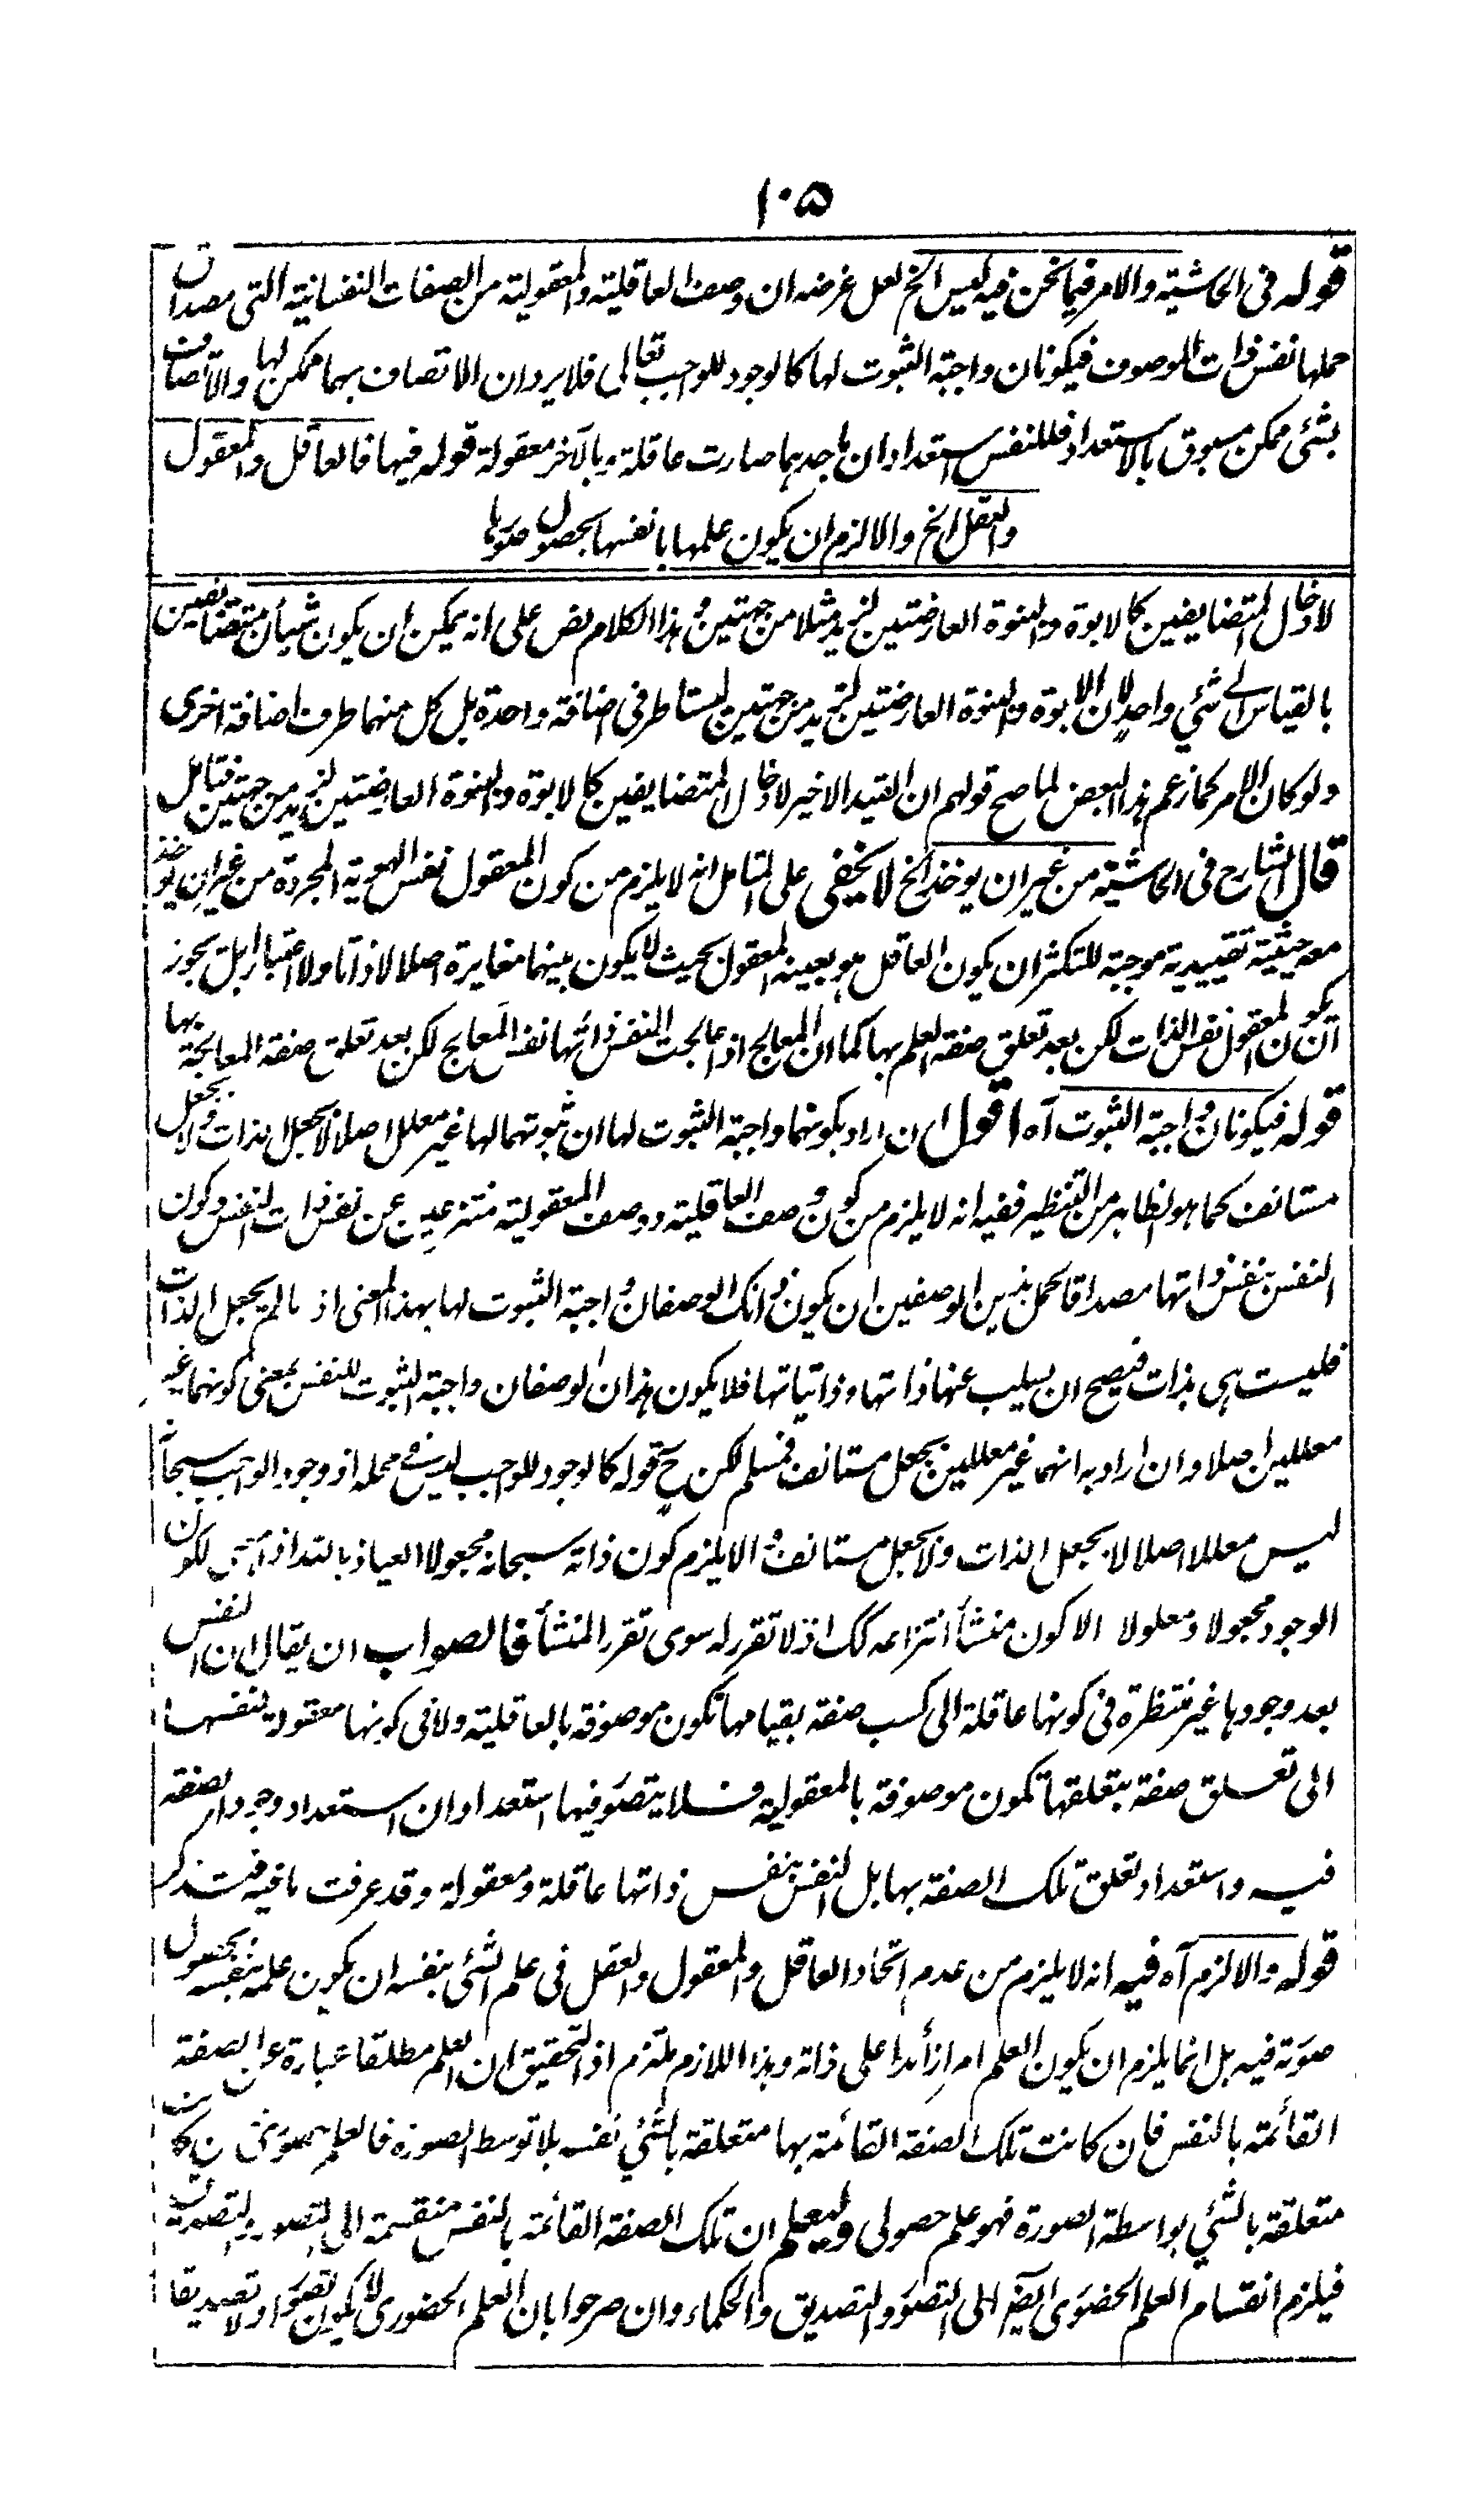 ١٠۵
قوله فى الحاشية والامر فيما نحن فيه ليس الخ لعل غرضه ان وصف العاقلية والمعقولية من الصفات النفسانية التى مصداق
حملها نفس ذات الموصوف فيكونان واجبة الثبوت لها كالوجود للواجب تعالى فلا يرد ان الاتصاف بهما ممكن لها والاتصاف
بشئ ممكن مسبوق بالاستعداد فللنفس استعدادان باحدهما صارت عاقلة وبالآخر معقولة قوله فيها فالعاقل والمعقول
والعقل الخ والا لزم ان يكون علمها بانفسها بحصول صورها
لادخال المتضايفين كالابوة والبنوة العارضتين لزيد مثلا من جهتين وهذا الكلام نص على انه يمكن ان يكون شيأن متضايفين
بالقياس الى شئ واحد لان الابوة والبنوة العارضتين لزيد من جهتين ليستا طرفى اضافة واحدة بل كل منهما طرف اضافة اخرى
ولو كان الامر كما زعم هذا البعض لما صح قولهم ان القيد الاخير لادخال المتضايفين كالابوة والبنوة العارضتين لزيد من جهتين فتامل
قال الشارح فى الحاشية من غير ان يوخذ الخ لا يخفى على المتامل انه لا يلزم من كون المعقول نفس الهوية المجردة من غير ان يوخذ
معه حيثية تقييدية موجبة للتكثر ان يكون العاقل هو بعينه المعقول بحيث لا يكون بينهما مغايرة اصلا لا ذاتا ولا اعتبارا بل يجوز
ان يكون المعقول نفس الذات لكن بعد تعلق صفة العلم بها كما ان المعالج اذا عالجت النفس ذاتها نفس المعالج لكن بعد تعلق صفة المعالجة بها
قوله فيكونان واجبة الثبوت آه اقول ان اراد بكونهما واجبة الثبوت لها ان ثبوتهما لها غير معلل اصلا لا بجعل الذات ولا بجعل
مستانف كما هو الظاهر من التنظير ففيه انه لا يلزم من كون وصف العاقلية ووصف المعقولية منتزعين عن نفس ذات النفس وكون
النفس بنفس ذاتها مصداقا لحمل هذين الوصفين ان يكون ذانك الوصفان واجبة الثبوت لها بهذا المعنى اذ ما لم يجعل الذات
فليست هى بذات فيصح ان يسلب عنها ذاتها وذاتياتها فلا يكون هذان الوصفان واجبة الثبوت للنفس بمعنى كونهما غير
معللين اصلا وان اراد به انهما غير معللين بجعل مستانف فمسلم لكن ح قوله كالوجود للواجب ليس فى محله اذ وجود الواجب سبحانه
ليس معللا اصلا لا بجعل الذات ولا بجعل مستانف والا يلزم كون ذاته سبحانه مجعولا العياذ بالله اذ لا معنى لكون
الوجود مجعولا ومعلولا الا كون منشأ انتزاعه كك اذ لا تقرر له سوى تقرر المنشأ فالصواب ان يقال ان النفس
بعد وجودها غير منتظرة فى كونها عاقلة الى كسب صفة بقيامها تكون موصوفة بالعاقلية ولا فى كونها معقولة لنفسها
الى تعلق صفة بتعلقها تكون موصوفة بالمعقولية فلا يتصور فيها استعدادان استعداد وجود الصفة
فيه واستعداد تعلق تلك الصفة بها بل النفس بنفس ذاتها عاقلة ومعقولة وقد عرفت ما فيه فتذكر
قوله والا لزم آه فيه انه لا يلزم من عدم اتحاد العاقل والمعقول والعقل فى علم الشئ بنفسه ان يكون علمه بنفسه بحصول
صورته فيه بل انما يلزم ان يكون العلم امرا زائدا على ذاته وهذا اللازم ملتزم اذ التحقيق ان العلم مطلقا عبارة عن الصفة
القائمة بالنفس فان كانت تلك الصفة القائمة بها متعلقة بالشئ نفسه بلا توسط الصورة فالعلم حضورى وان كانت
متعلقة بالشئ بواسطة الصورة فهو علم حصولى وليعلم ان تلك الصفة القائمة بالنفس منقسمة الى التصور والتصديق
فيلزم انقسام العلم الحضورى ايضا الى التصور والتصديق والحكماء وان صرحوا بان العلم الحضورى لا يكون تصورا ولا تصديقا